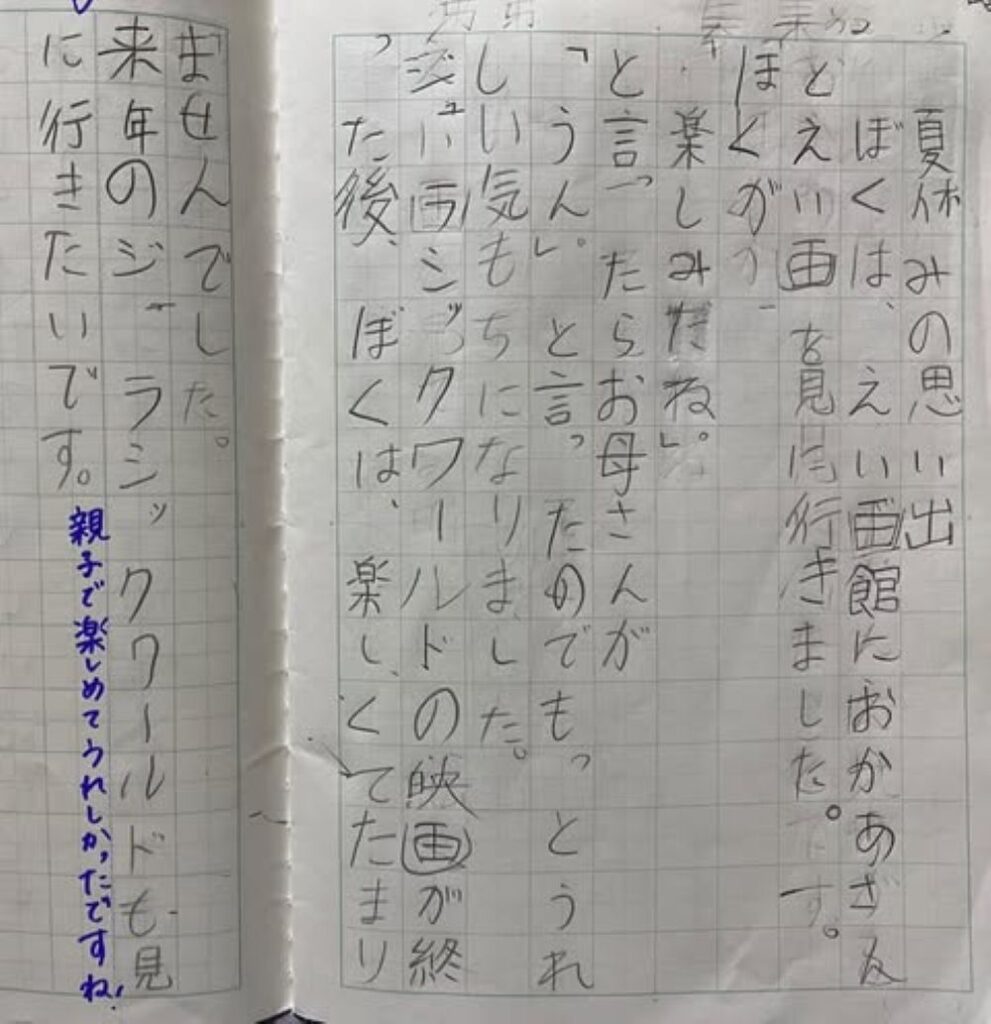 夏休みの思い出
ぼくは、えい画館におかあさん
とえい画を見に行きました。
ほくが
楽しみだね」。
と言ったらお母さんが
「うん」。と言ったのでもっとうれ
しい気もちになりました。
ジュラシックワールドの映画が終
った後、ぼくは、楽しくてたまり
ませんでした。
来年のジュラシックワールドも見
に行きたいです。
親子で楽しめてうれしかったですね！